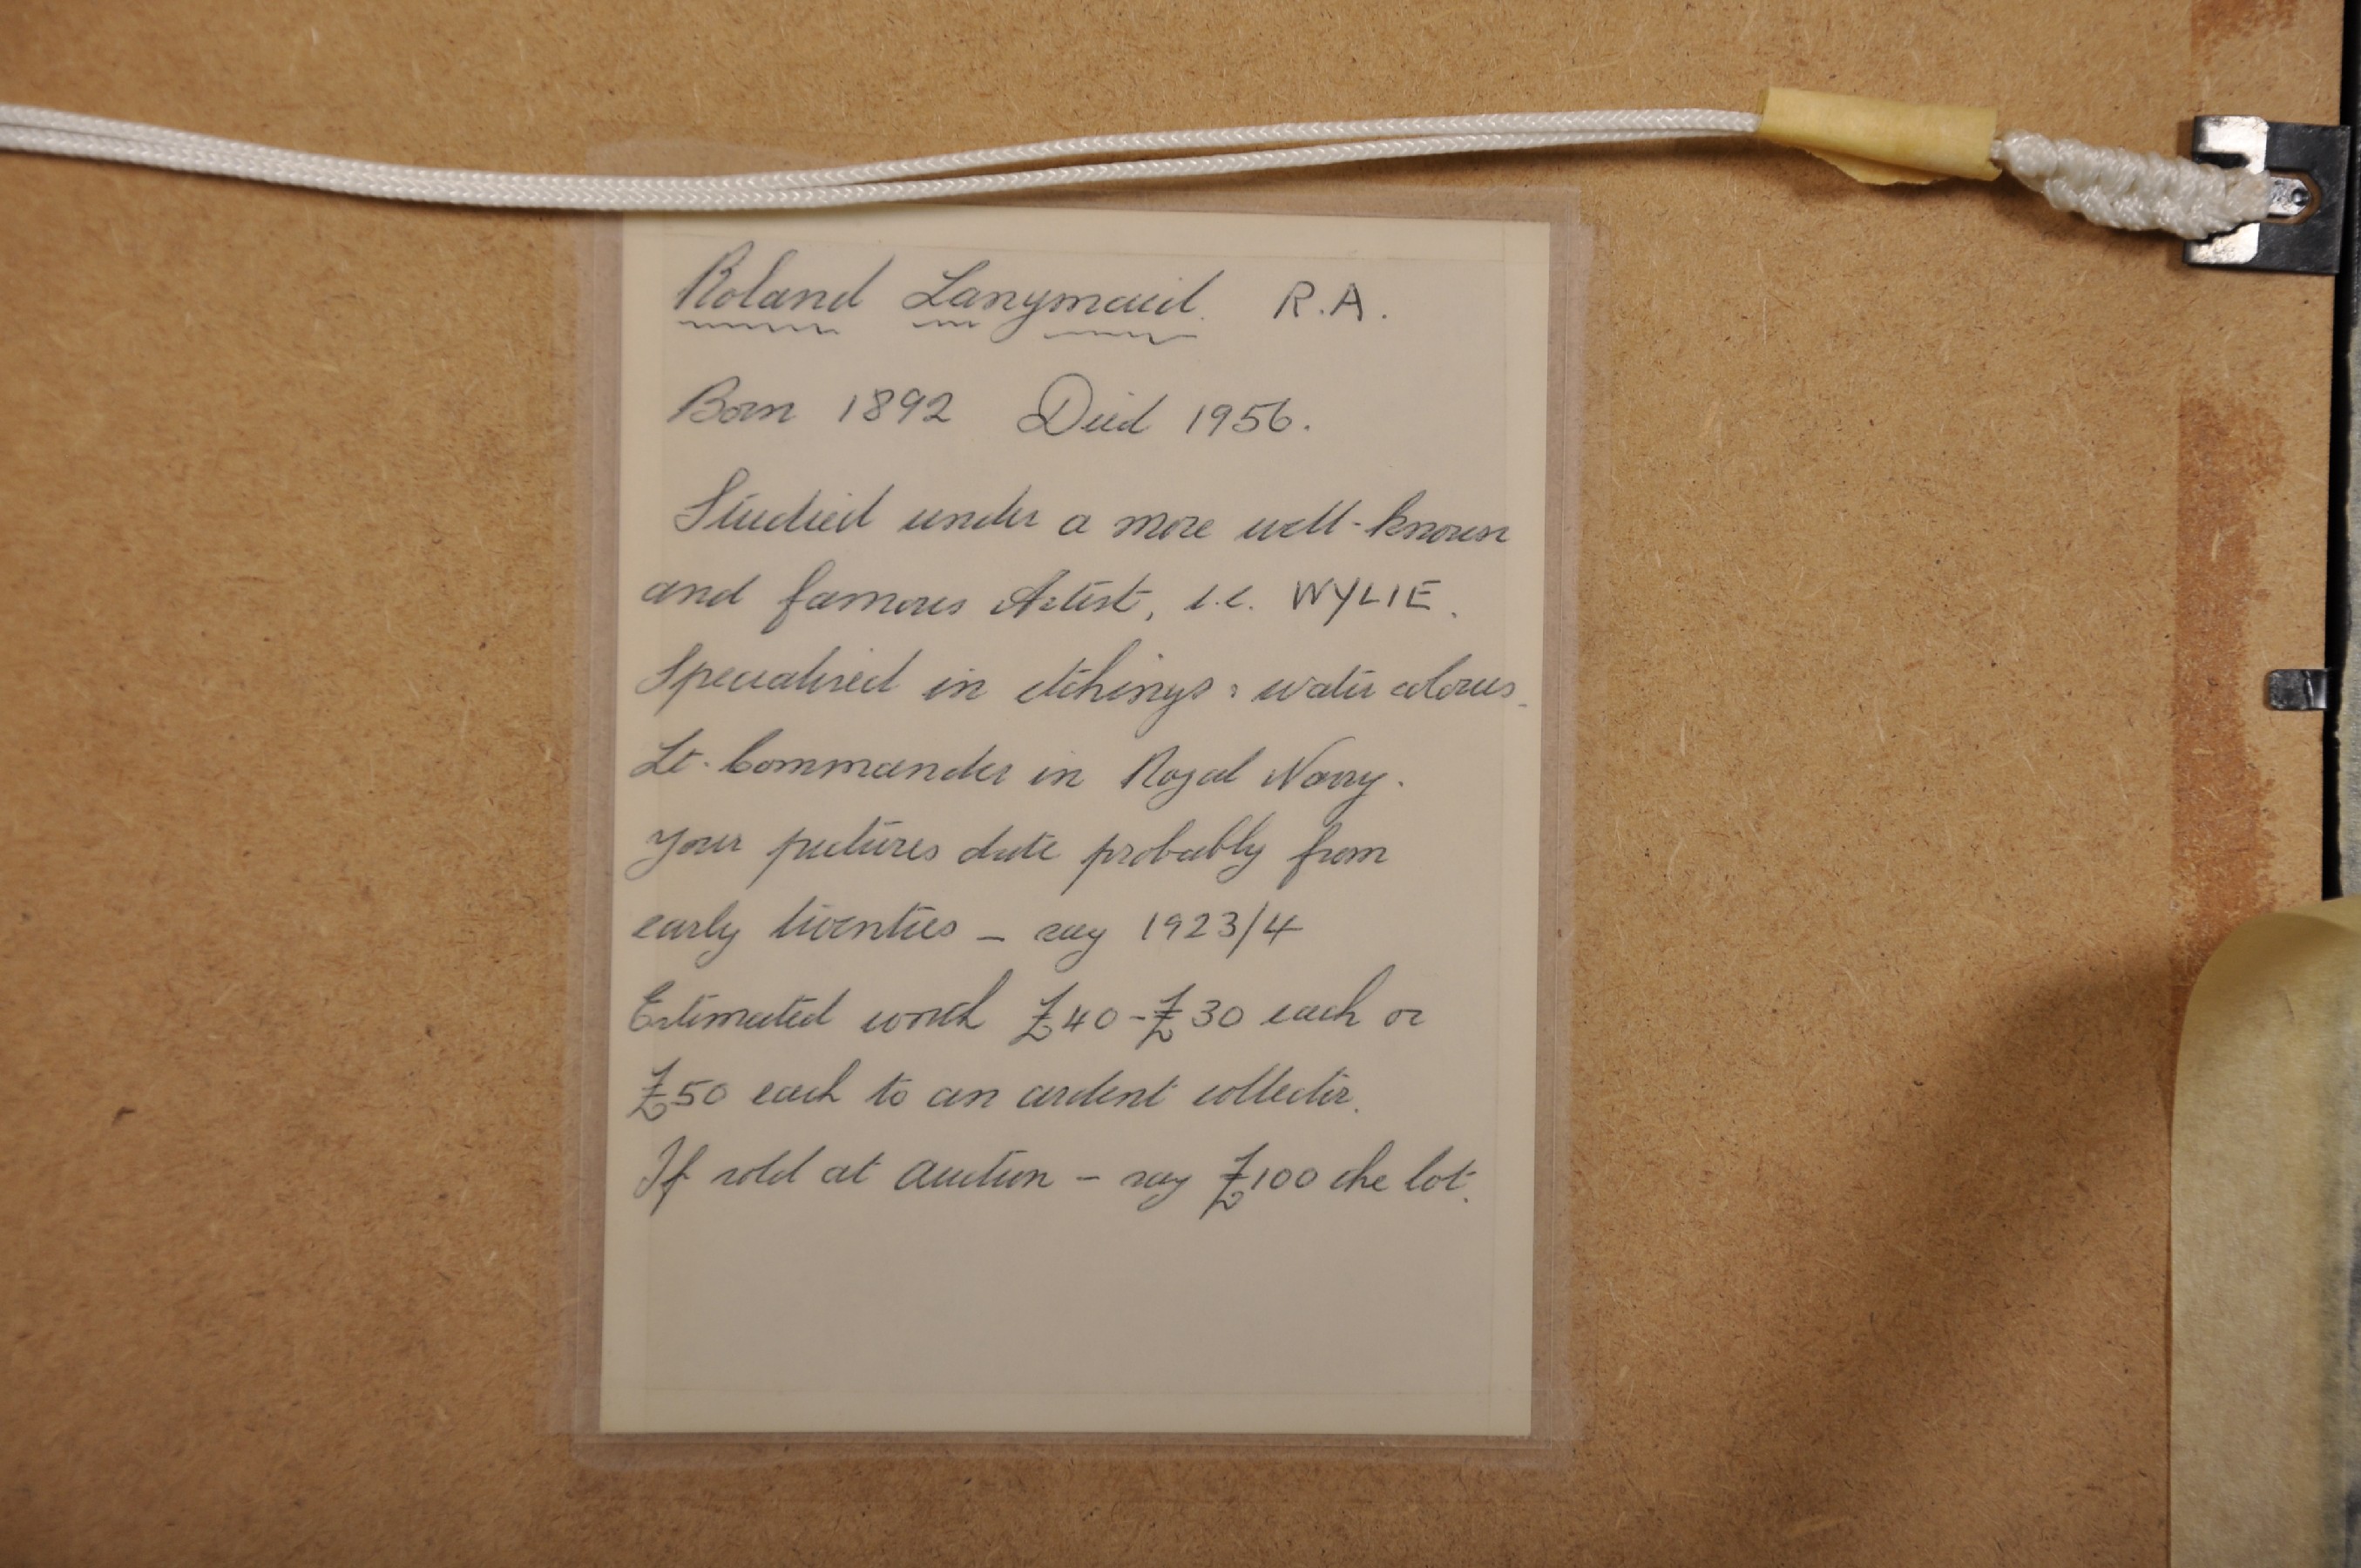 Roland Langmaid. R.A.
Born 1892 Died 1956.
Studied under a more well-known
and famous Artist, i.e. WYLIE.
Specialised in etchings & water colours.
Lt. Commander in Royal Navy.
Your pictures date probably from
early twenties - say 1923/4
Estimated worth £40-£30 each or
£50 each to an ardent collector.
If sold at auction - say £100 the lot.